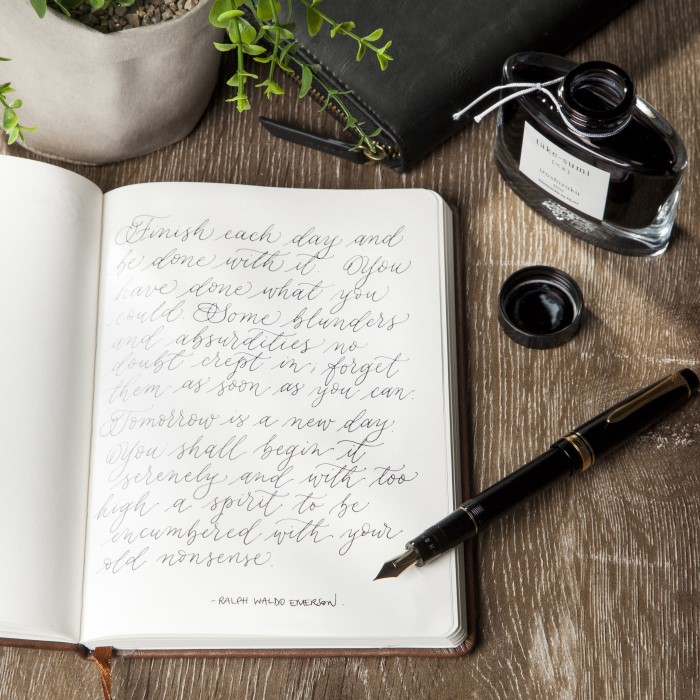 Finish each day and
be done with it. You
have done what you
could. Some blunders
and absurdities no
doubt crept in; forget
them as soon as you can.
Tomorrow is a new day.
You shall begin it
serenely and with too
high a spirit to be
encumbered with your
old nonsense.
-RALPH WALDO EMERSON.
take-sumi
iroshizuku